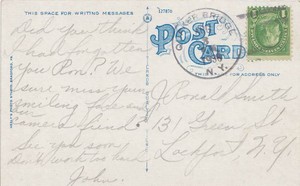 THIS SPACE FOR WRITING MESSAGES
Did you think I
had forgotten
you Ron? We
sure miss your
smiling face and
camera friend?
See you soon
Don't work too hard
John.
127878
POST
CARD
FOR ADDRESS ONLY
BRIDGE
N.Y.
1
J. Ronald Smith
131 Green St
Lockport, N.Y.